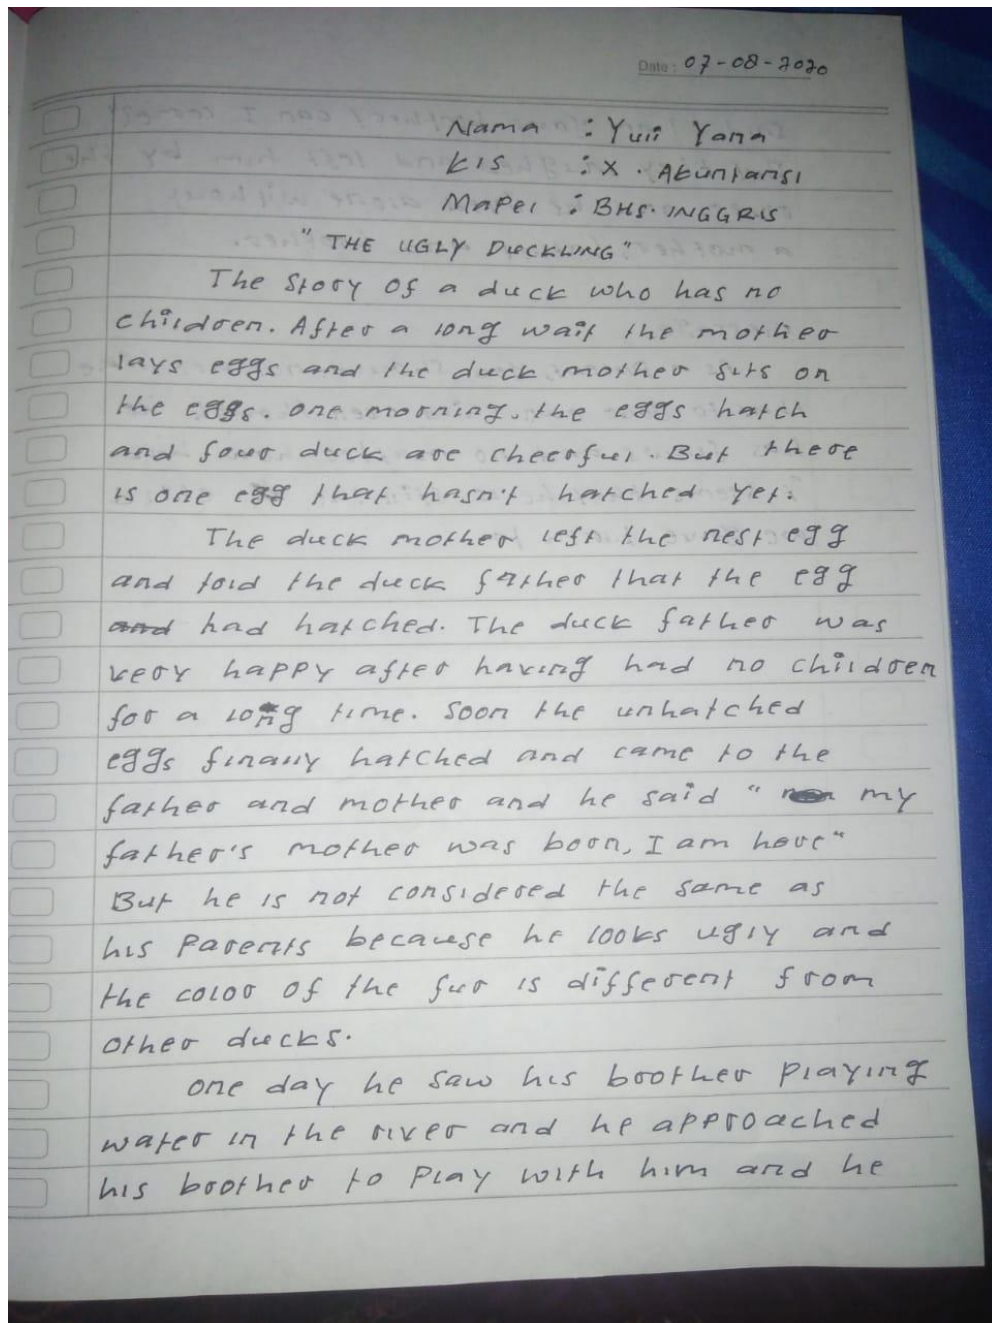 Date : 07-08-2020
Nama : Yuli Yana
Kls : X . Akuntansi
Mapel : BHS. INGGRIS
"THE UGLY DUCKLING"
The Story Of a duck who has no
children. After a long wait the mother
lays eggs and the duck mother sits on
the eggs. one morning, the eggs hatch
and four duck are cheerful. But there
is one egg that hasn't hatched yet.
The duck mother left the nest egg
and told the duck father that the egg
and had hatched. The duck father was
very happy after having had no children
for a long time. Soon the unhatched
eggs finally hatched and came to the
father and mother and he said " my
father's mother was born, I am here"
But he is not considered the same as
his Parents because he looks ugly and
the color of the fur is different from
other ducks.
One day he saw his brother Playing
water in the river and he approached
his brother to Play with him and he